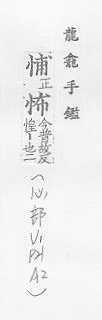 龍龕手鑑
悑正怖今普故反惶〻也二
(心部
V1
P1
A2)